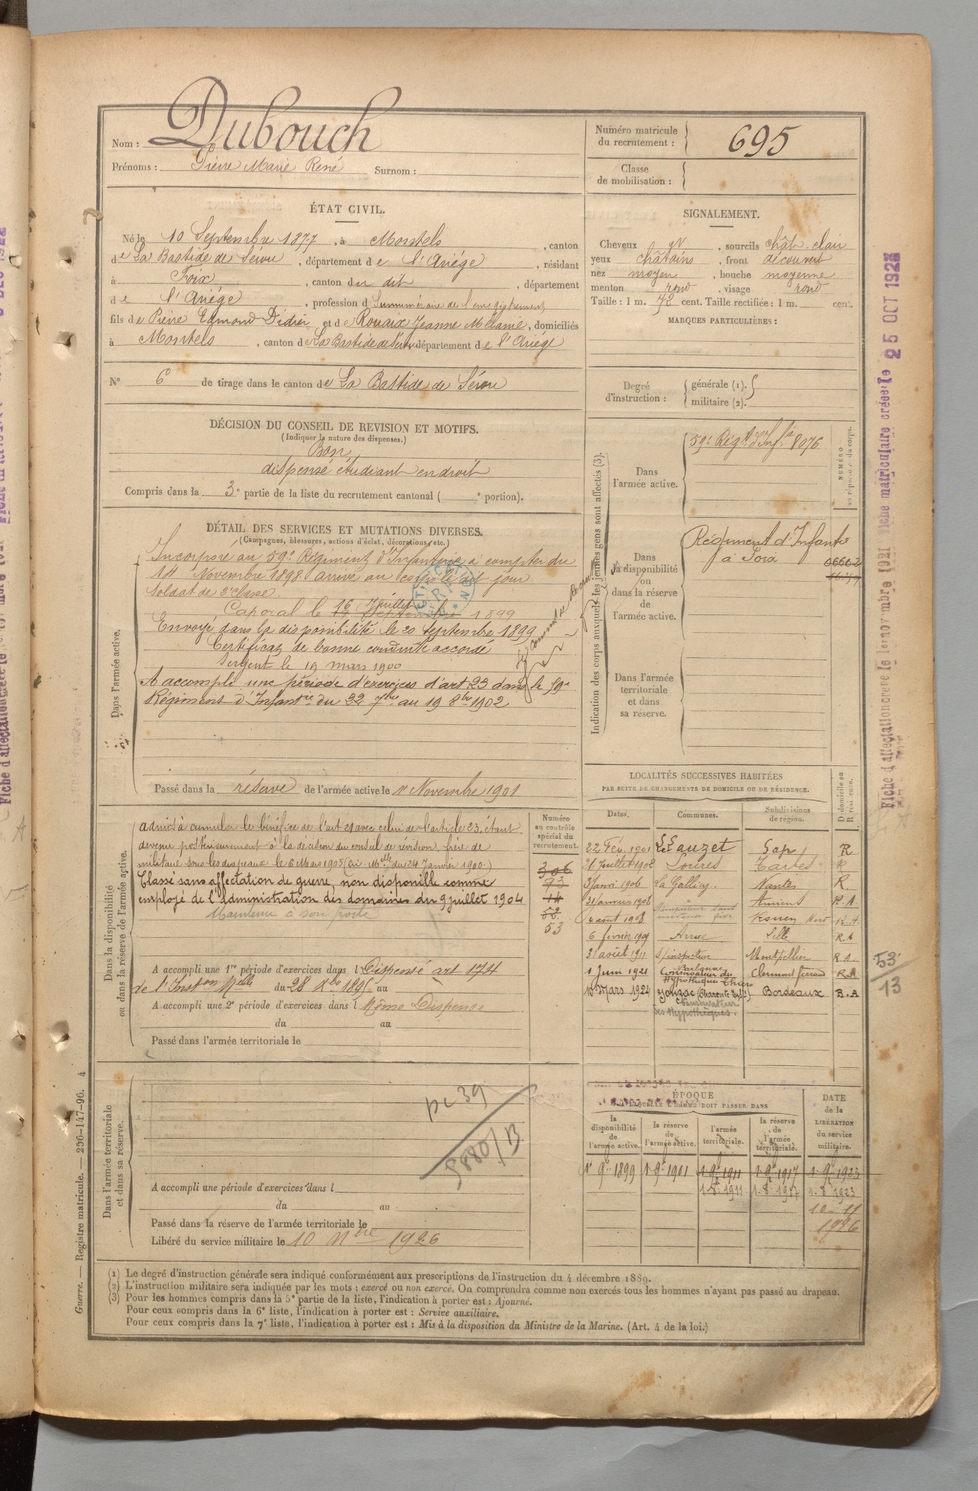 Nom : Dubouch
Prénoms : Pierre Marie René Surnom :
Numéro matricule du recrutement : 695
Classe de mobilisation :
ÉTAT CIVIL.
Né le 10 Septembre 1877, à Montels, canton
de La Bastide de Sérou, département de l'Ariège, résidant
à Foix, canton du dit, département
de l'Ariège, profession de Surnuméraire de l'enregistrement
fils de Pierre Edmond Didier et de Rouaix Jeanne Mélanie, domiciliés
à Montels, canton de La Bastide de Sérou, département de l'Ariège
N° 6 de tirage dans le canton de La Bastide de Sérou
SIGNALEMENT.
Cheveux gr, sourcils chât. clair
yeux châtains, front découvert
nez moyen, bouche moyenne
menton rond, visage rond
Taille : 1 m. 72 cent. Taille rectifiée : 1 m. cent.
MARQUES PARTICULIÈRES :
Degré d'instruction : générale (1). militaire (2).
DÉCISION DU CONSEIL DE REVISION ET MOTIFS.
(Indiquer la nature des dispenses.)
Bon
dispensé étudiant en droit
Compris dans la 3e partie de la liste du recrutement cantonal ( e portion).
DÉTAIL DES SERVICES ET MUTATIONS DIVERSES.
(Campagnes, blessures, actions d'éclat, décorations, etc.)
Dans l'armée active.
Incorporé au 59e Régiment d'Infanterie à compter du
14 Novembre 1898 arrivé au corps le dit jour
soldat de 2e classe.
Caporal le 16 Juillet 1899
Envoyé dans la disponibilité le 20 Septembre 1899
Certificat de bonne conduite accordé
Sergent le 19 mars 1900
A accompli une période d'exercices d'art 23 dans le 59e
Régiment d'Infantrie du 22 7bre au 19 8bre 1902
Passé dans la réserve de l'armée active le 1er Novembre 1901
Indication des corps auxquels les jeunes gens sont affectés (3).
NUMÉRO
Dans l'armée active.
59e Régt d'Inf.ie 8076
Dans la disponibilité ou dans la réserve de l'armée active.
Régiment d'Infantie
à Foix
Dans l'armée territoriale et dans sa réserve.
LOCALITÉS SUCCESSIVES HABITÉES
PAR SUITE DE CHANGEMENTS DE DOMICILE OU DE RÉSIDENCE.
Dates. Communes. Subdivisions de région.
22 Fév. 1901 Le Lauzet Gap R
Tarbes R
3 Janvi 1906 La Gacilly Nantes R
31 Janvier 1908 Amiens R A
4 août 1908 Rouen R A
6 février 1909 Lille R A
3 août 1911 Montpellier R A
1 Juin 1921 Conservateur des Hypothèques Thiers Clermont Ferrand R A
1 Mars 1924 Jonzac (Charente Inf.) Bordeaux R.A
Conservation des Hypothèques.
Dans la disponibilité ou dans la réserve de l'armée active.
Numéro au contrôle spécial du recrutement.
admis à cumuler le bénéfice de l'art 21 avec celui de l'article 23, étant
devenu postérieurement à la décision du conseil de révision, frère de
militaire sous les drapeaux le 6 Mai 1903
Classé sans affectation de guerre, non disponible comme
employé de l'Administration des domaines du 9 juillet 1904
Maintenu à son poste
306
93
53
A accompli une 1re période d'exercices dans l Dispensé art 174
A accompli une 2e période d'exercices dans l Même Dispense
du au
Passé dans l'armée territoriale le
53
13
Dans l'armée territoriale et dans sa réserve.
pc 39
5880/B
A accompli une période d'exercices dans l
du au
Passé dans la réserve de l'armée territoriale le
Libéré du service militaire le 10 Nbre 1926
ÉPOQUE
À LAQUELLE L'HOMME DOIT PASSER DANS
la disponibilité de l'armée active. la réserve de l'armée active. l'armée territoriale. la réserve de l'armée territoriale.
DATE de la LIBÉRATION du service militaire.
1er 9bre 1899 1er 9bre 1901 1er 9bre 1911 1er 9bre 1917 1er 9bre 1923
1.8.1911 1.8.1917 1.8.1923
1926
(1) Le degré d'instruction générale sera indiqué conformément aux prescriptions de l'instruction du 4 décembre 1889.
(2) L'instruction militaire sera indiquée par les mots : exercé ou non exercé. On comprendra comme non exercés tous les hommes n'ayant pas passé au drapeau.
(3) Pour les hommes compris dans la 5e partie de la liste, l'indication à porter est : Ajourné.
Pour ceux compris dans la 6e liste, l'indication à porter est : Service auxiliaire.
Pour ceux compris dans la 7e liste, l'indication à porter est : Mis à la disposition du Ministre de la Marine. (Art. 4 de la loi.)
Guerre. — Registre matricule. — 236-147-96. 4